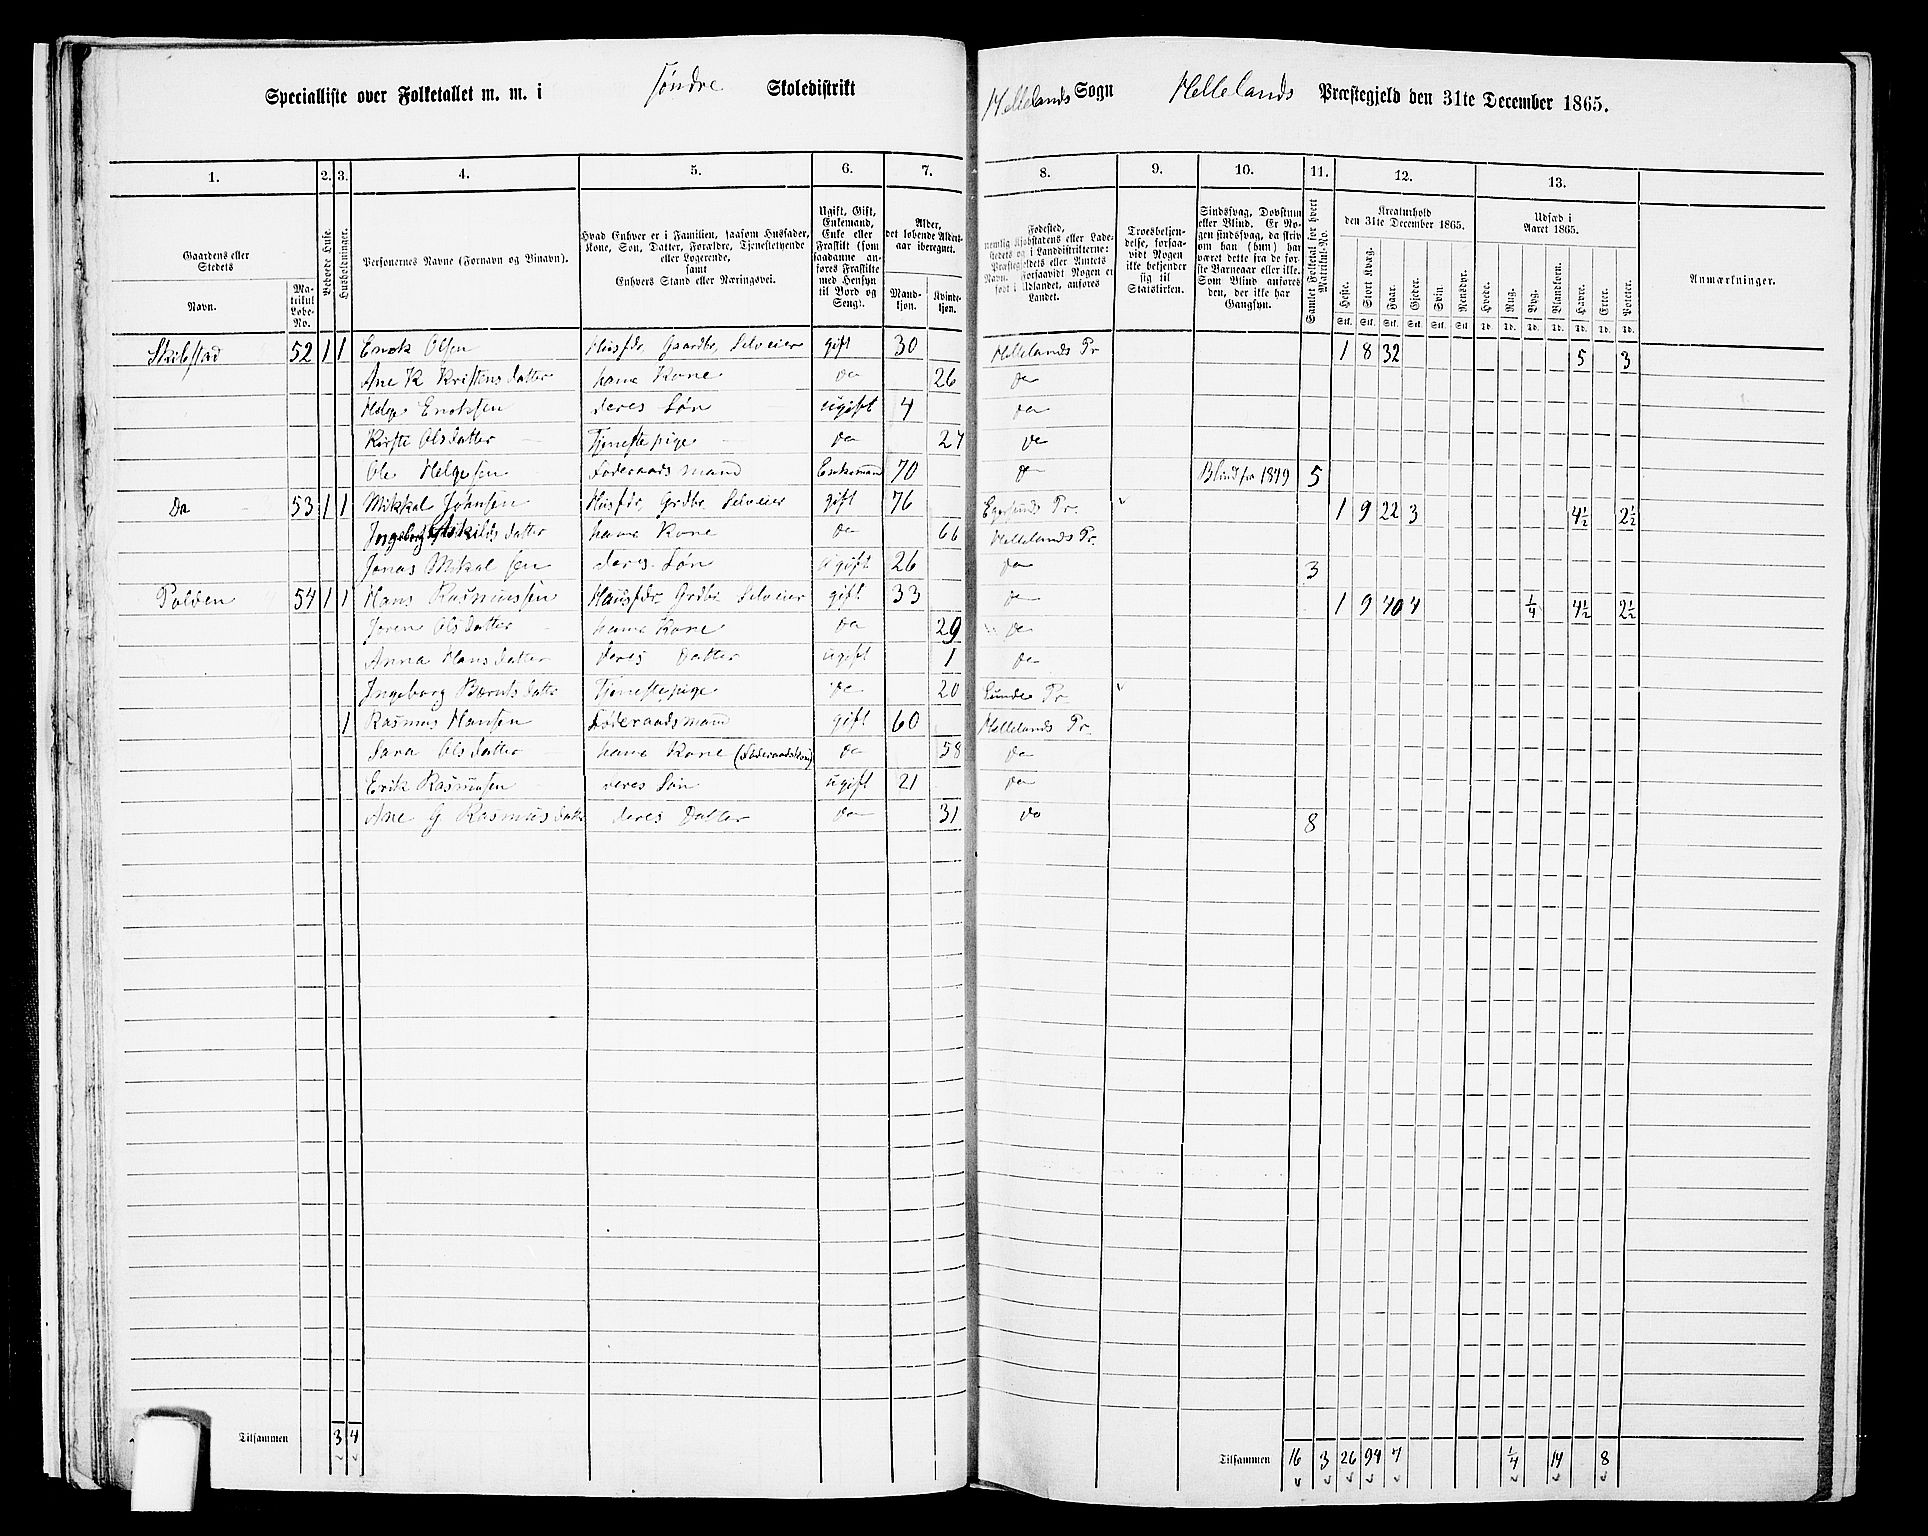 Specialliste over Folketallet m. m. i Söndre Skoledistrikt
Hellelands Sogn Hellelands Præstegjeld den 31te December 1865.
1. 2. 3. 4. 5. 6. 7. 8. 9. 10. 11. 12. 13.
Gaardens eller Stedets
Navn.
Matrikul Løbe-No.
Beboede Huse.
Husholdninger.
Personernes Navne (Fornavn og Tilnavn).
Hvad Enhver er i Familien, saasom Husfader, Kone, Søn, Datter, Forældre, Tjenestetyende eller Logerende,
samt
Enhvers Stand eller Næringsvei.
Ugift, Gift, Enkemand, Enke eller Fraskilt (som saadanne anføres Fraskilte med Hensyn til Bord og Seng).
Alder, det løbende Aldersaar iberegnet.
Mandkjøn.
Kvindekjøn.
Fødested, nemlig Kjøbstadens eller Ladestedets og i Landdistrikterne: Præstegjeldets eller Amtets Navn. Forsaavidt Nogen er født i Udlandet, anføres Landet.
Troesbekjendelse, forsaavidt Nogen ikke bekjender sig til Statskirken.
Sindssvag, Døvstum eller Blind. Er Nogen sindssvag, da skriv om han (hun) har været dette fra de første Barneaar eller ikke. Som Blind anføres den, der ikke har Gangsyn.
Samlet Folketal for hvert Matrikul-No.
Kreaturhold den 31te December 1865.
Heste. Stort Kvæg. Faar. Gjeder. Svin. Rensdyr.
Stk. Stk. Stk. Stk. Stk. Stk.
Udsæd i Aaret 1865.
Hvede. Rug. Byg. Blandkorn. Havre. Erter. Poteter.
Td. Td. Td. Td. Td. Td. Td.
Anmærkninger.
Skibstad 52 1 1 Enok Olsen Husfdr, Gaardbr, Selveier gift 30 Hellelands Pr 1 8 32 5 3
Ane K Kristensdatter hans Kone do 26 do
Helge Enoksen deres Søn ugift 4 do
Kirsti Olsdatter Tjenestepige do 27 do
Ole Helgesen Føderaadsmand Enkemand 70 do Blind fra 1849 5
Do 53 1 1 Mikkal Johnsen Husfdr, Grdbr, Selveier gift 76 Egersunds Pr. 1 9 22 3 4½ 2½
Ingeborg Eskildsdatter hans Kone do 66 Hellelands Pr.
Jonas Mikalsen deres Søn ugift 26 do 3
Polden 54 1 1 Hans Rasmussen Husfdr, Grdbr Selveier gift 33 do 1 9 40 4 ¼ 4½ 2½
Joren Olsdatter hans Kone do 29 do
Anna Hansdatter deres Datter ugift 1 do
Ingeborg Berntsdatter Tjenestepige do 20 Lunde Pr
1 Rasmus Hansen Føderaadsmand gift 60 Hellelands Pr.
Sara Olsdatter hans Kone (Føderaadskone) do 58 do
Erik Rasmusen deres Søn ugift 21 do
Ane G Rasmusdatter deres Datter do 31 do 8
Tilsammen 3 4
Tilsammen 16 3 26 94 7 ¼ 14 8